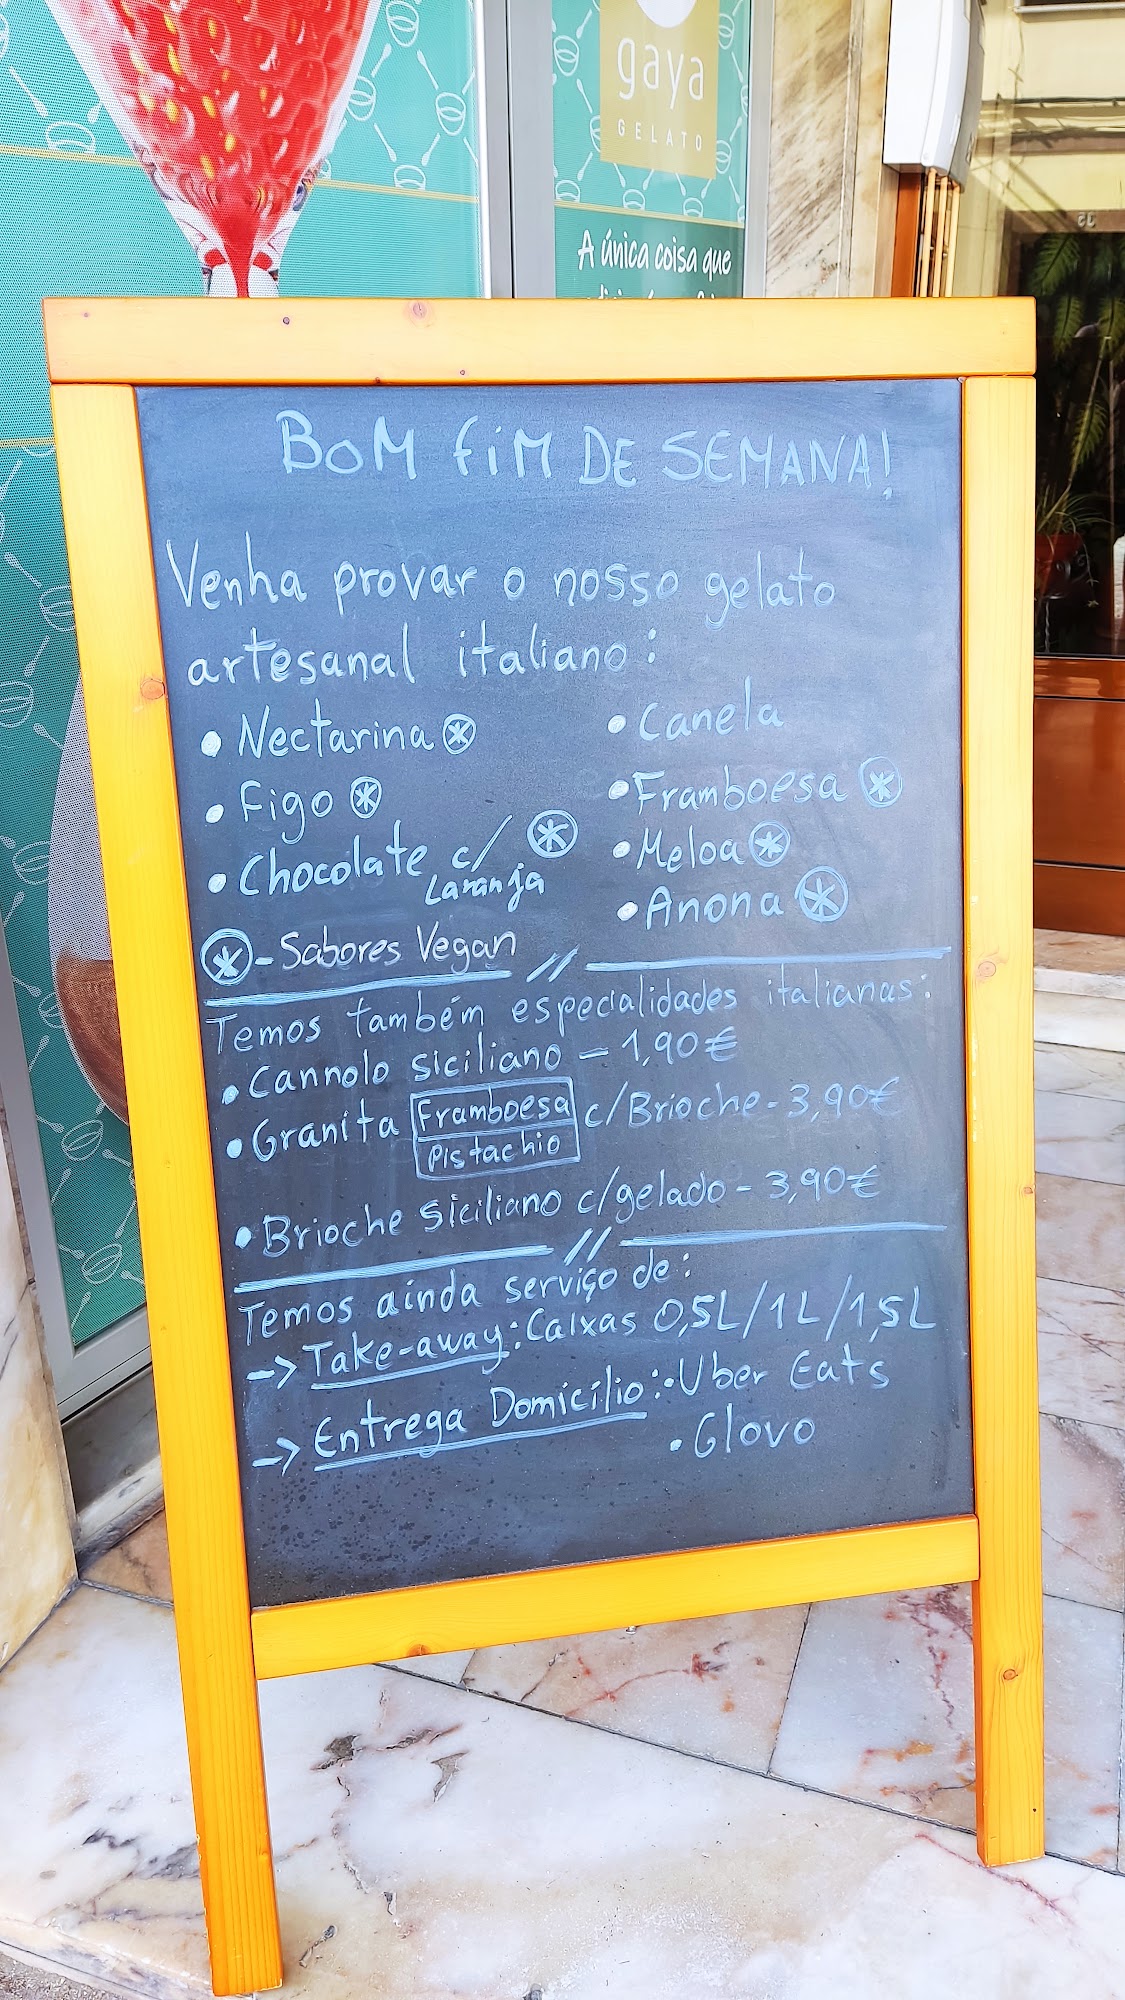 gaya
GELATO
A única coisa que
BOM FIM DE SEMANA!
Venha provar o nosso gelato
artesanal italiano:
• Nectarina ⊛
• Figo ⊛
• Chocolate c/ ⊛
Laranja
• Canela
• Framboesa ⊛
• Meloa ⊛
• Anona ⊛
⊛ - Sabores Vegan
//
Temos também especialidades italianas:
• Cannolo siciliano - 1,90€
• Granita Framboesa c/Brioche - 3,90€
Pistachio
• Brioche siciliano c/gelado - 3,90€
//
Temos ainda serviço de:
-> Take-away: Caixas 0,5L/1L/1,5L
-> Entrega Domicílio: • Uber Eats
• Glovo
35